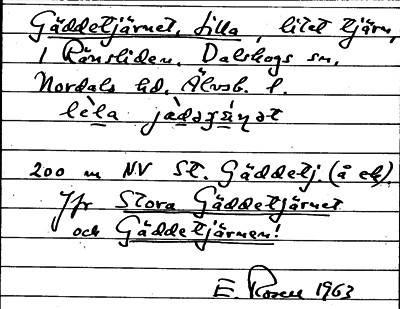 Gäddetjärnet, Lilla, litet tjärn,
i Rånsliden. Dalskogs sn,
Nordals hd, Älvsb. l.
200 m NV St. Gäddetj. (å ek)
Jfr Stora Gäddetjärnet
och Gäddetjärnen!
E. Rosell 1963